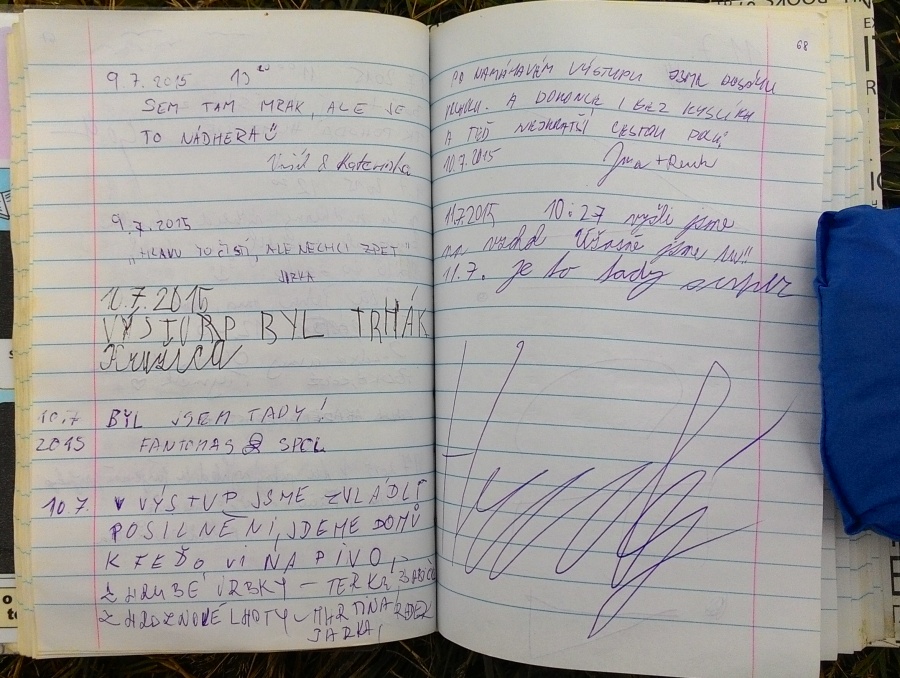 9.7.2015 13⁲⁰
SEM TAM MRAK, ALE JE
TO NÁDHERA Ü
& Kateřinka
9.7.2015
„HLAVU TO ČISTÍ, ALE NECHCI ZPET"
JIRKA
1.7.2015
VÝSTURP BYL TRHÁK
10.7 BYL JSEM TADY!
2015 FANTOMAS & SPOL
10.7. VÝSTUP JSME ZVLÁDLI
POSILNĚNI, JDEME DOMŮ
K FEĎOVI NA PIVO,
Z HRUBÉ VRBKY - TERKA,
Z HROZNOVÉ LHOTY - MARTINA, RADEK
JARKA,
68
PO NAMÁHAVÉM VÝSTUPU JSME DOSÁHLI
A DOKONCE I BEZ KYSLÍKU
A TEĎ NEJKRATŠÍ CESTOU DOLŮ
10.7.2015
11.7.2015 10:27 vyšli jsme
na vrchol Úžasné jsme tu!!
11.7. je to tady